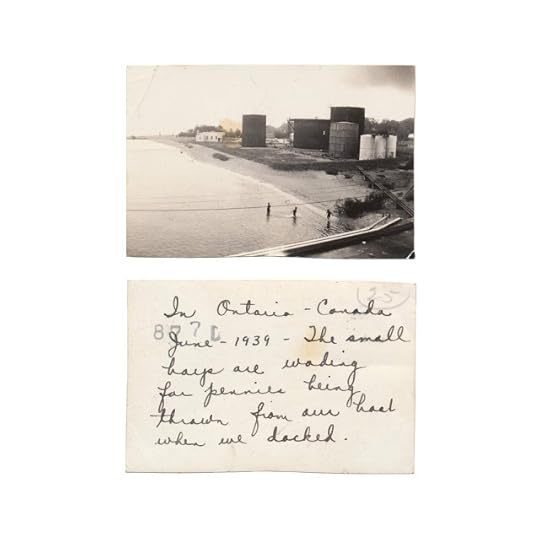 In Ontario - Canada
25
8770
June - 1939 - The small
boys are wading
for pennies being
thrown from our boat
when we docked.